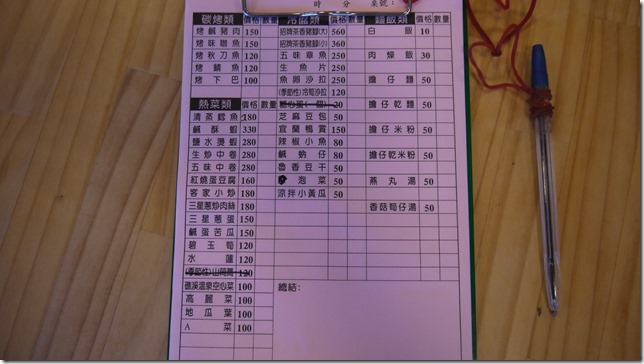 時 分 桌號：
碳烤類 價格 數量
烤鹹豬肉 150
烤味噌魚 150
烤秋刀魚 120
烤鯖魚 120
烤下巴 100
熱菜類 價格 數量
清蒸鱈魚 180
鹹酥蝦 330
鹽水燙蝦 280
生炒中卷 280
五味中卷 280
紅燒蛋豆腐 160
客家小炒 180
三星蔥炒肉絲 180
三星蔥蛋 150
鹹蛋苦瓜 150
碧玉筍 120
水蓮 120
(季節性)山茼蒿 120
礁溪溫泉空心菜 100
高麗菜 100
地瓜葉 100
A菜 100
冷盤類 價格 數量
招牌茶香豬腳(大) 560
招牌茶香豬腳(小) 360
五味章魚 250
生魚片 250
魚卵沙拉 250
(季節性)冷筍沙拉 120
糖心蛋(一個) 20
芝麻豆包 50
宜蘭鴨賞 150
辣椒小魚 80
鹹蚋仔 80
魯香豆干 50
泡菜 50
涼拌小黃瓜 50
總結：
麵飯類 價格 數量
白飯 10
肉燥飯 30
擔仔麵 50
擔仔乾麵 50
擔仔米粉 50
擔仔乾米粉 50
燕丸湯 50
香菇筍仔湯 50